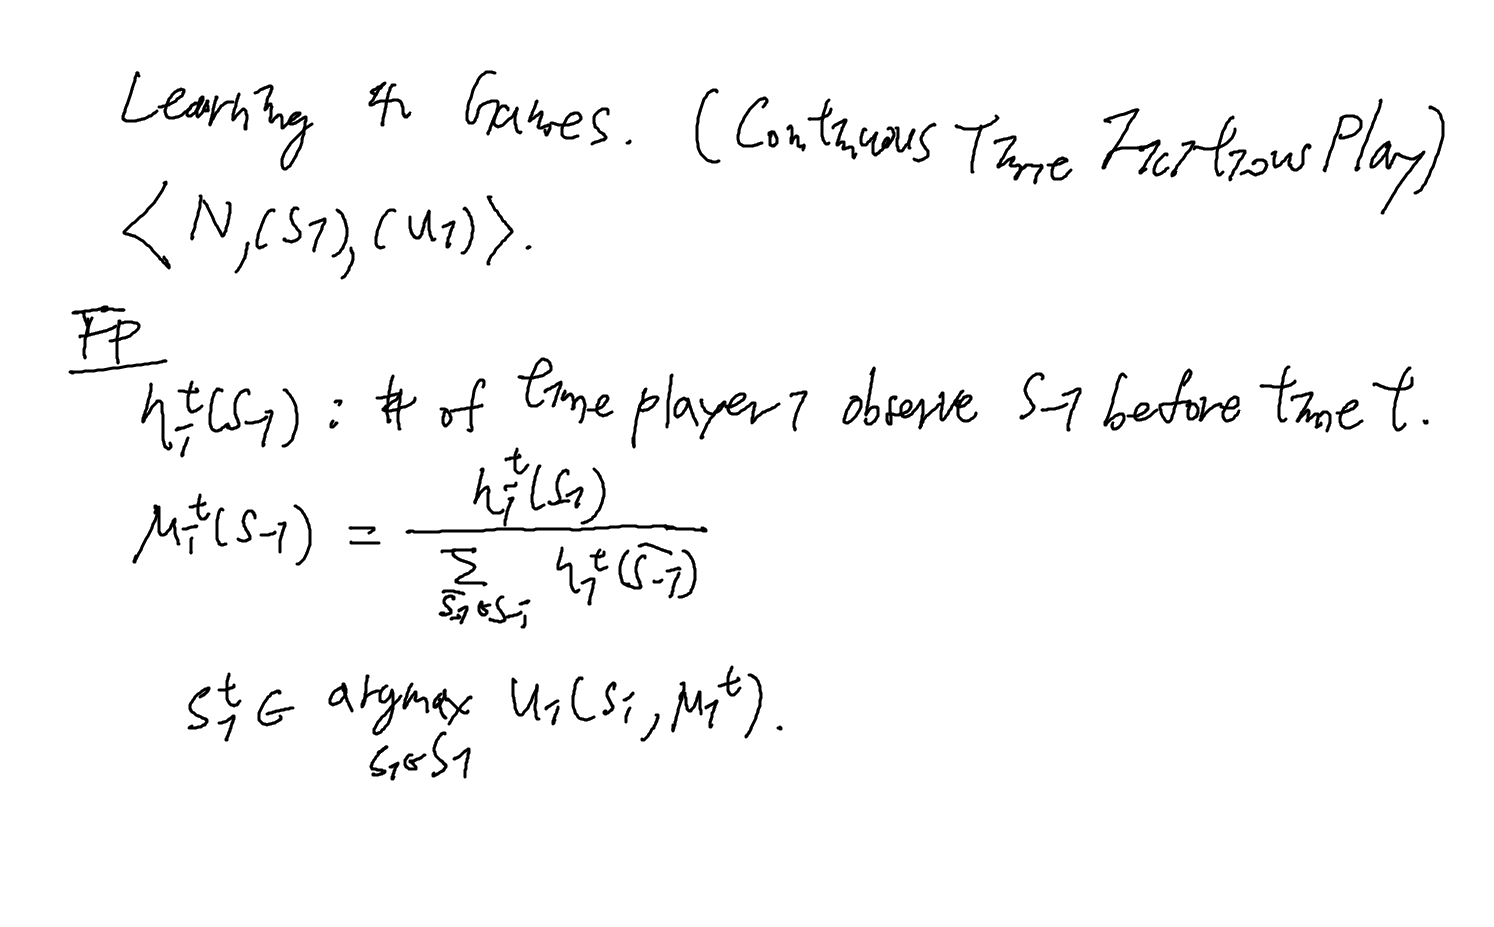 Learning in Games. (Continuous Time Fictitious Play)
⟨N, (Si), (ui)⟩.
FP
η_i^t(S_-i) : # of time player i observe S_-i before time t.
μ_i^t(S_-i) = η_i^t(S_i) / Σ_{s̄_-i ∈ S_-i} η_i^t(s̄_-i)
s_i^t ∈ argmax_{s_i ∈ S_i} u_i(s_i, μ_i^t).